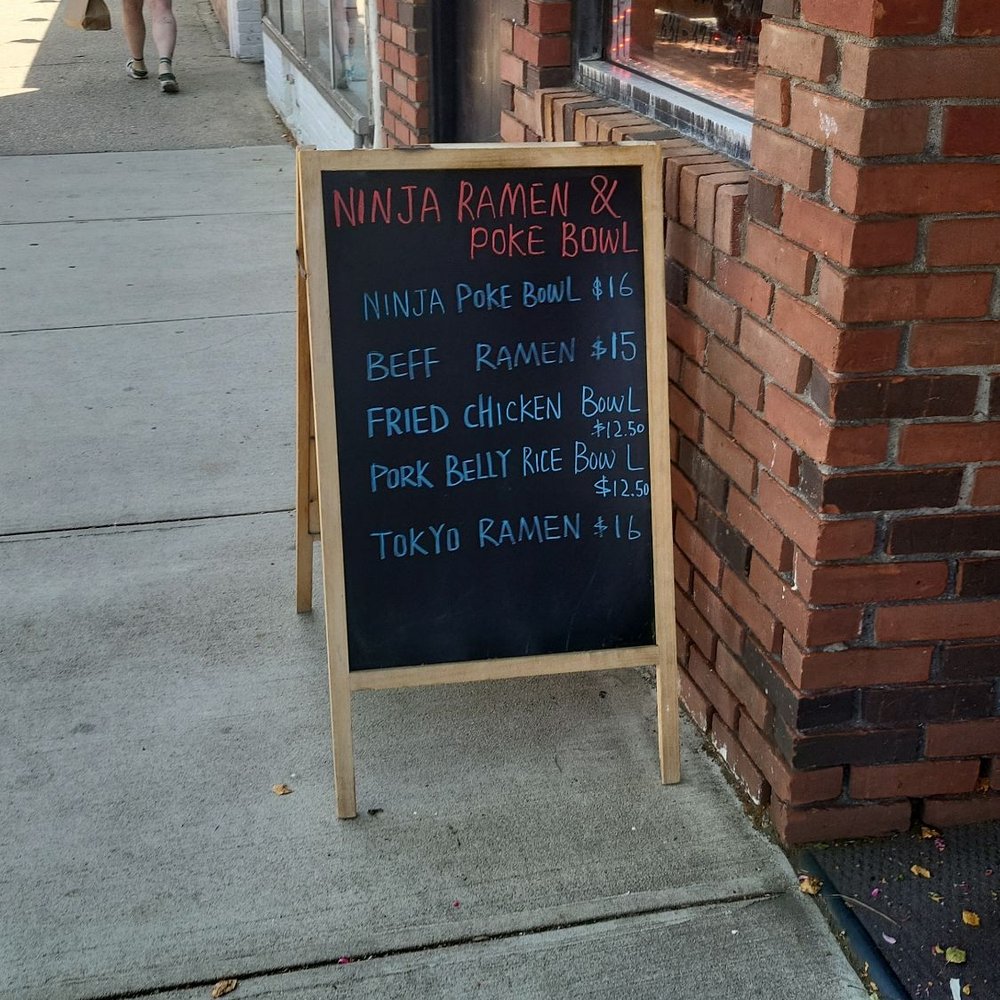 NINJA RAMEN &
POKE BOWL
NINJA POKE BOWL $16
BEFF RAMEN $15
FRIED CHICKEN BOWL
$12.50
PORK BELLY RICE BOWL
$12.50
TOKYO RAMEN $16